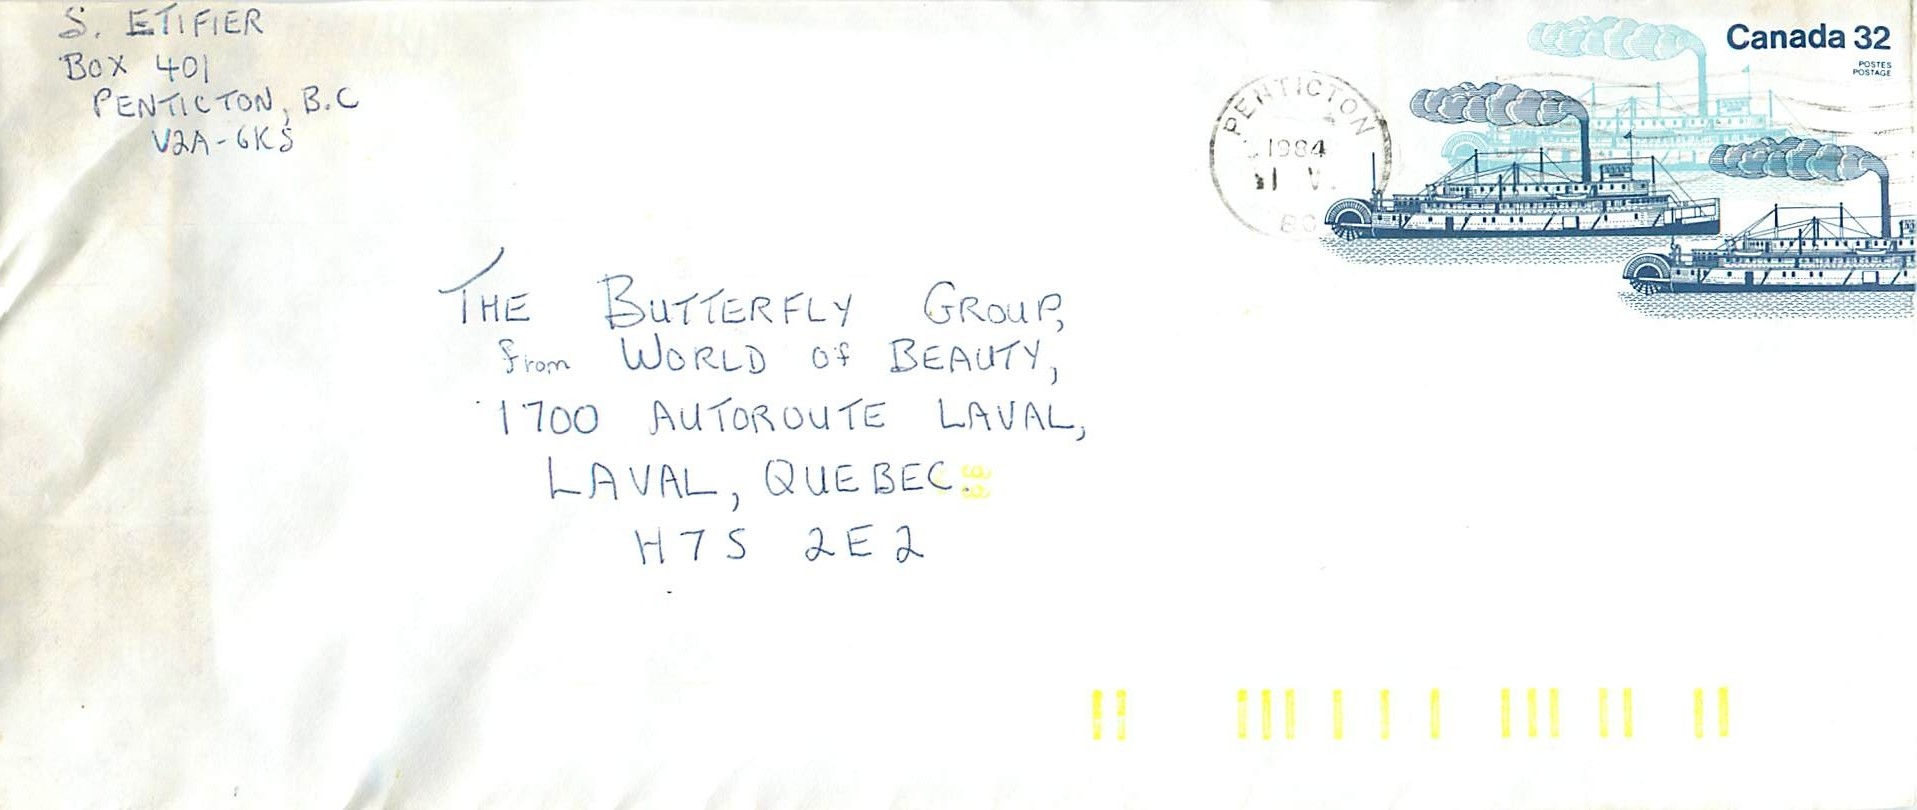 S. ETIFIER
Box 401
PENTICTON, B.C
V2A-6K5
Canada 32
POSTES
POSTAGE
PENTICTON
1984
V
BC
THE BUTTERFLY GROUP,
from WORLD OF BEAUTY,
1700 AUTOROUTE LAVAL,
LAVAL, QUEBEC.
H7S 2E2